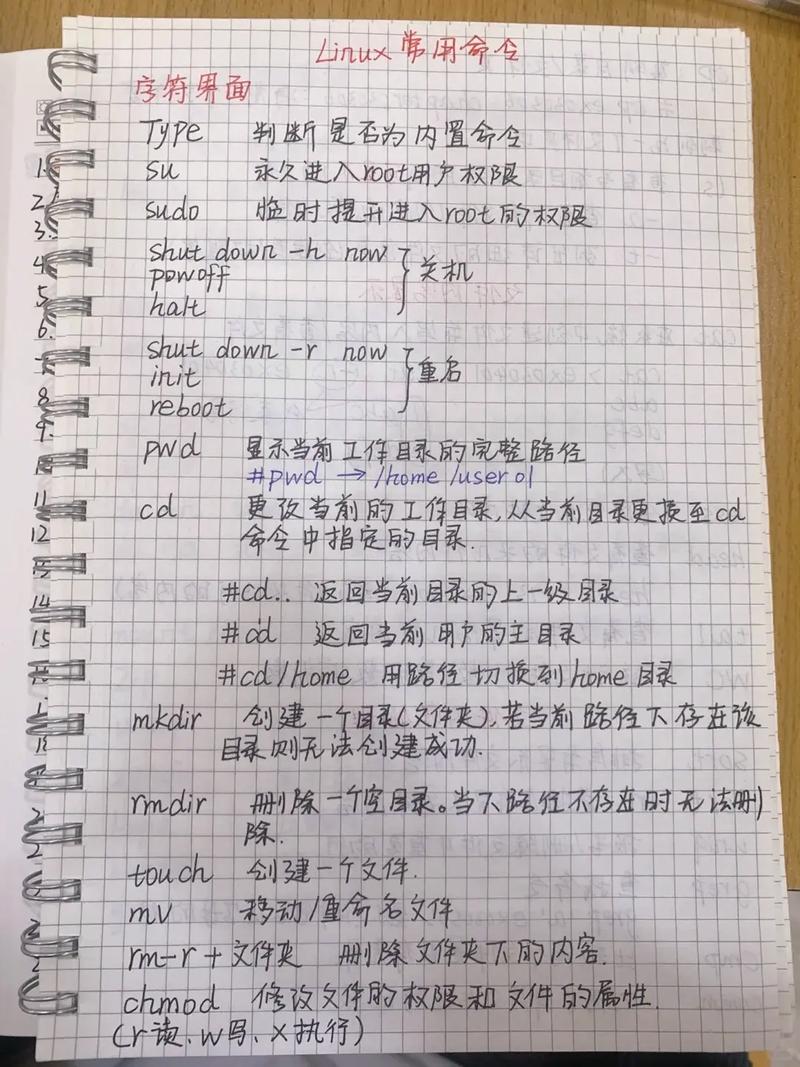 Linux常用命令
字符界面
Type 判断是否为内置命令
su 永久进入root用户权限
sudo 临时提升进入root的权限
shut down -h now
powoff 关机
halt
shut down -r now
init 重名
reboot
pwd 显示当前工作目录的完整路径
#pwd → /home/user01
cd 更改当前的工作目录,从当前目录更换至cd
命令中指定的目录.
#cd.. 返回当前目录的上一级目录
#cd 返回当前用户的主目录
#cd/home 用路径切换到home目录
mkdir 创建一个目录(文件夹),若当前路径下存在该
目录则无法创建成功.
rmdir 删除一个空目录。当下路径不存在时无法删
除.
touch 创建一个文件.
mv 移动/重命名文件
rm-r+文件夹 删除文件夹下的内容.
chmod 修改文件的权限和文件的属性.
(r读、w写、x执行)